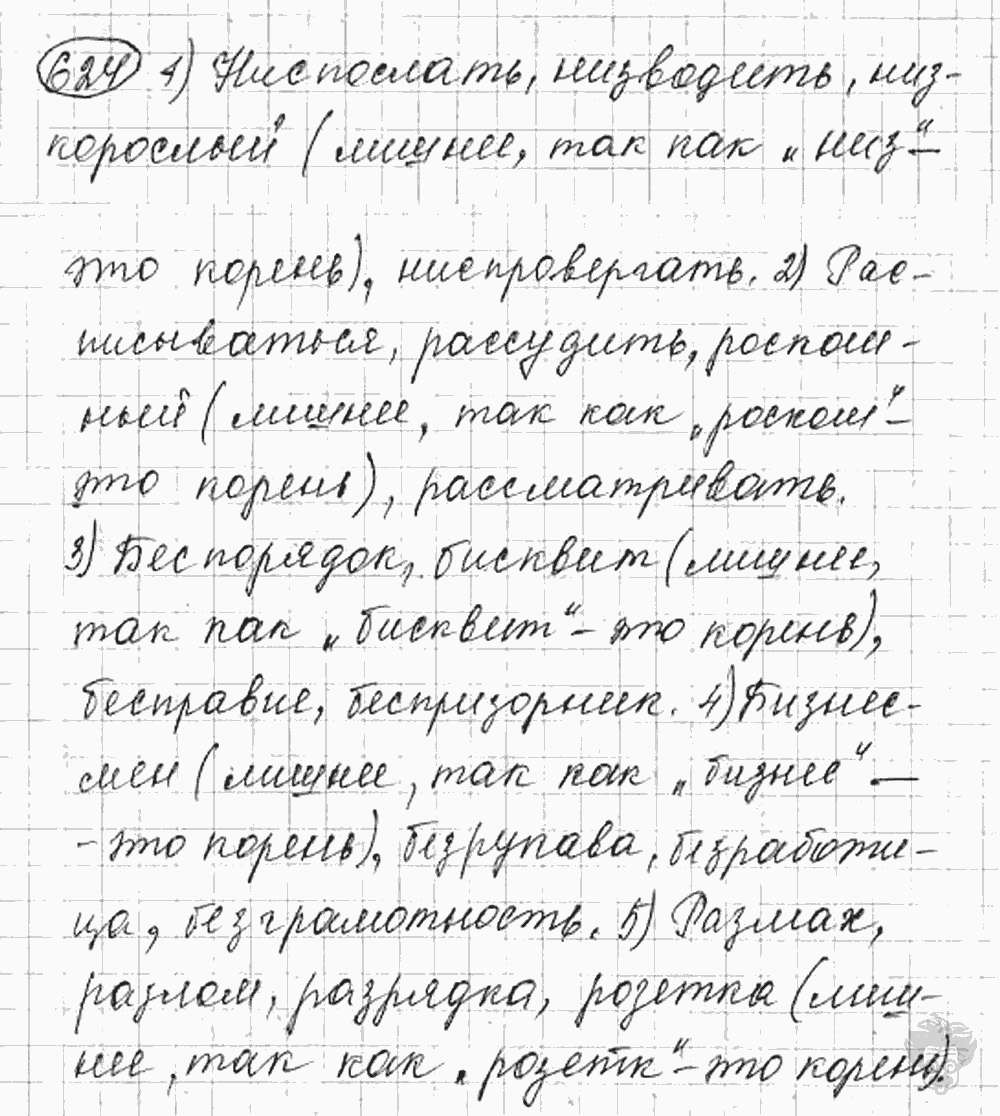 624 1) Ниспослать, низводить, низ-
корослый (лишнее, так как „низ“ –
это корень), ниспровергать. 2) Рас-
писываться, рассудить, роскош-
ный (лишнее, так как „роскош“ –
это корень), рассматривать.
3) Беспорядок, бисквит (лишнее,
так как „бисквит“ – это корень),
бесправие, беспризорник. 4) Бизнес-
мен (лишнее, так как „бизнес“ –
- это корень), безрукава, безработи-
ца, безграмотность. 5) Размах,
разлом, разрядка, розетка (лиш-
нее, так как „розетк“ – это корень).